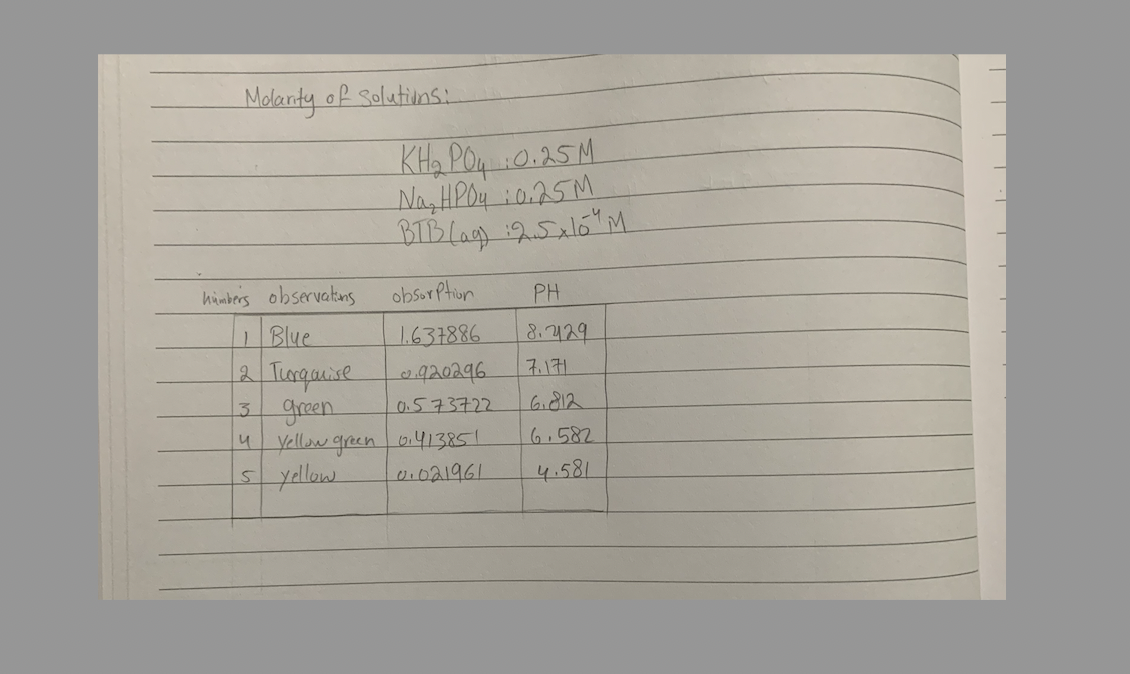 Molarity of Solutions:
KH₂PO₄ : 0.25M
Na₂HPO₄ : 0.25M
BTB(aq) : 2.5x10⁻⁴ M
numbers observations obsorption PH
1 Blue 1.637886
2 Turqouise 0.920296 7.171
3 green 0.573722 6.812
4 yellow green 0.413851 6.582
5 yellow 0.021961 4.581